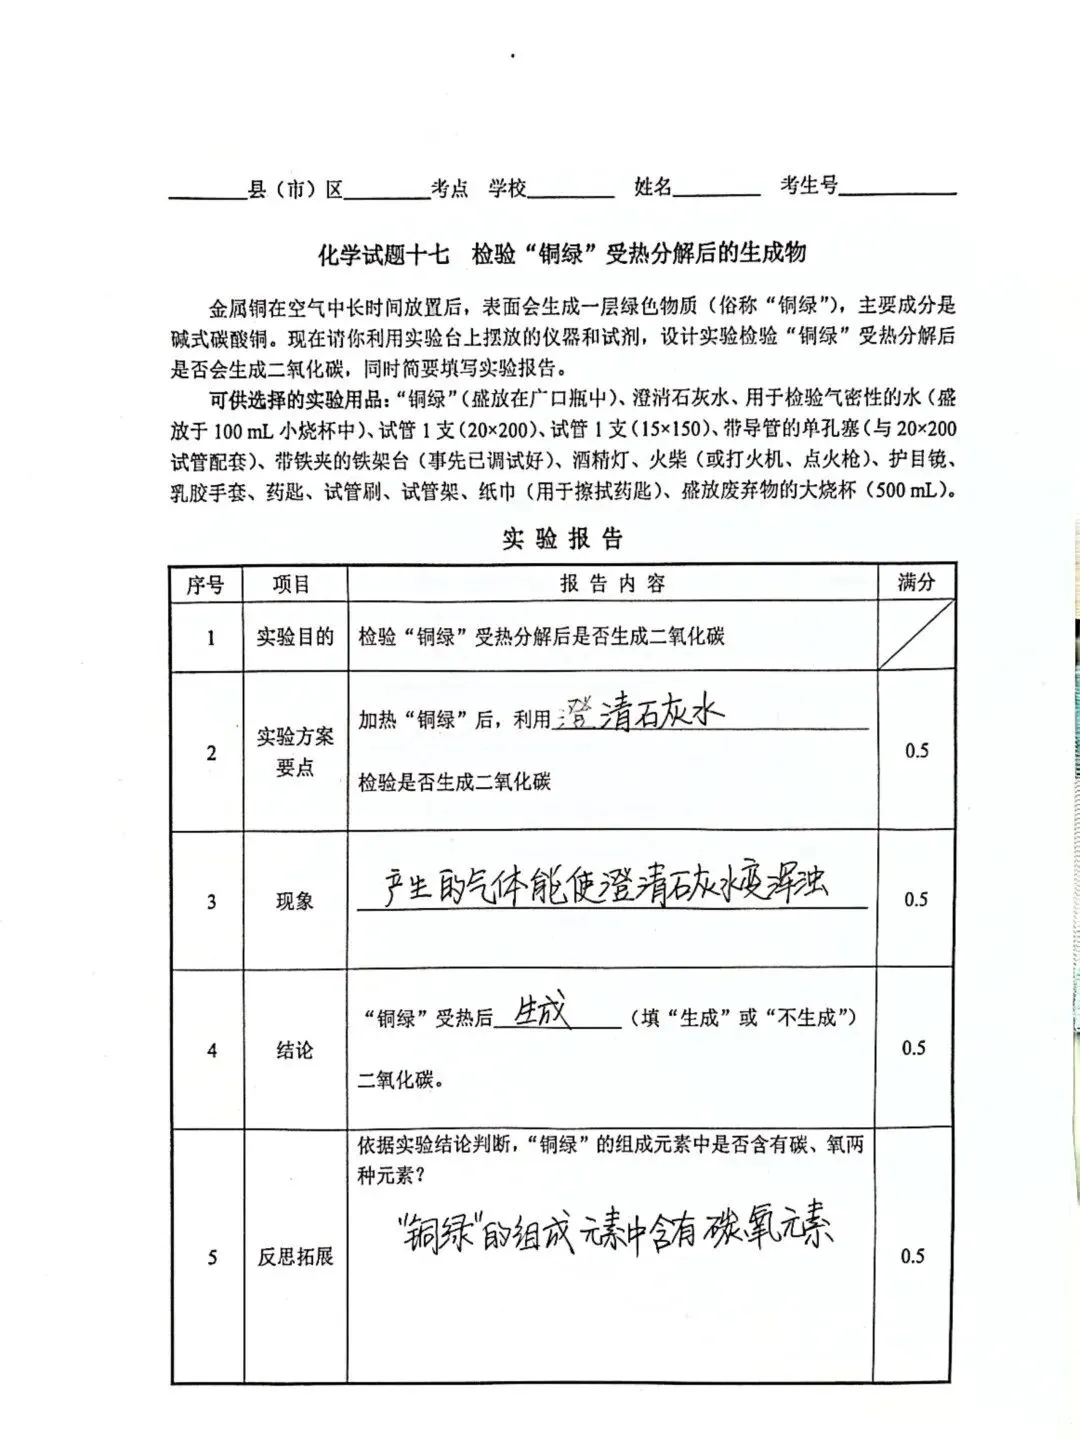 ____县（市）区____考点 学校____ 姓名____ 考生号____
化学试题十七 检验“铜绿”受热分解后的生成物
金属铜在空气中长时间放置后，表面会生成一层绿色物质（俗称“铜绿”），主要成分是
碱式碳酸铜。现在请你利用实验台上摆放的仪器和试剂，设计实验检验“铜绿”受热分解后
是否会生成二氧化碳，同时简要填写实验报告。
可供选择的实验用品：“铜绿”（盛放在广口瓶中）、澄清石灰水、用于检验气密性的水（盛
放于 100 mL 小烧杯中）、试管 1 支（20×200）、试管 1 支（15×150）、带导管的单孔塞（与 20×200
试管配套）、带铁夹的铁架台（事先已调试好）、酒精灯、火柴（或打火机、点火枪）、护目镜、
乳胶手套、药匙、试管刷、试管架、纸巾（用于擦拭药匙）、盛放废弃物的大烧杯（500 mL）。
实验报告
序号 项目 报告内容 满分
1 实验目的 检验“铜绿”受热分解后是否生成二氧化碳
2 实验方案要点 加热“铜绿”后，利用澄清石灰水
检验是否生成二氧化碳 0.5
3 现象 产生的气体能使澄清石灰水变浑浊 0.5
4 结论 “铜绿”受热后生成（填“生成”或“不生成”）
二氧化碳。 0.5
依据实验结论判断，“铜绿”的组成元素中是否含有碳、氧两
种元素？
5 反思拓展 “铜绿”的组成元素中含有碳氧元素 0.5